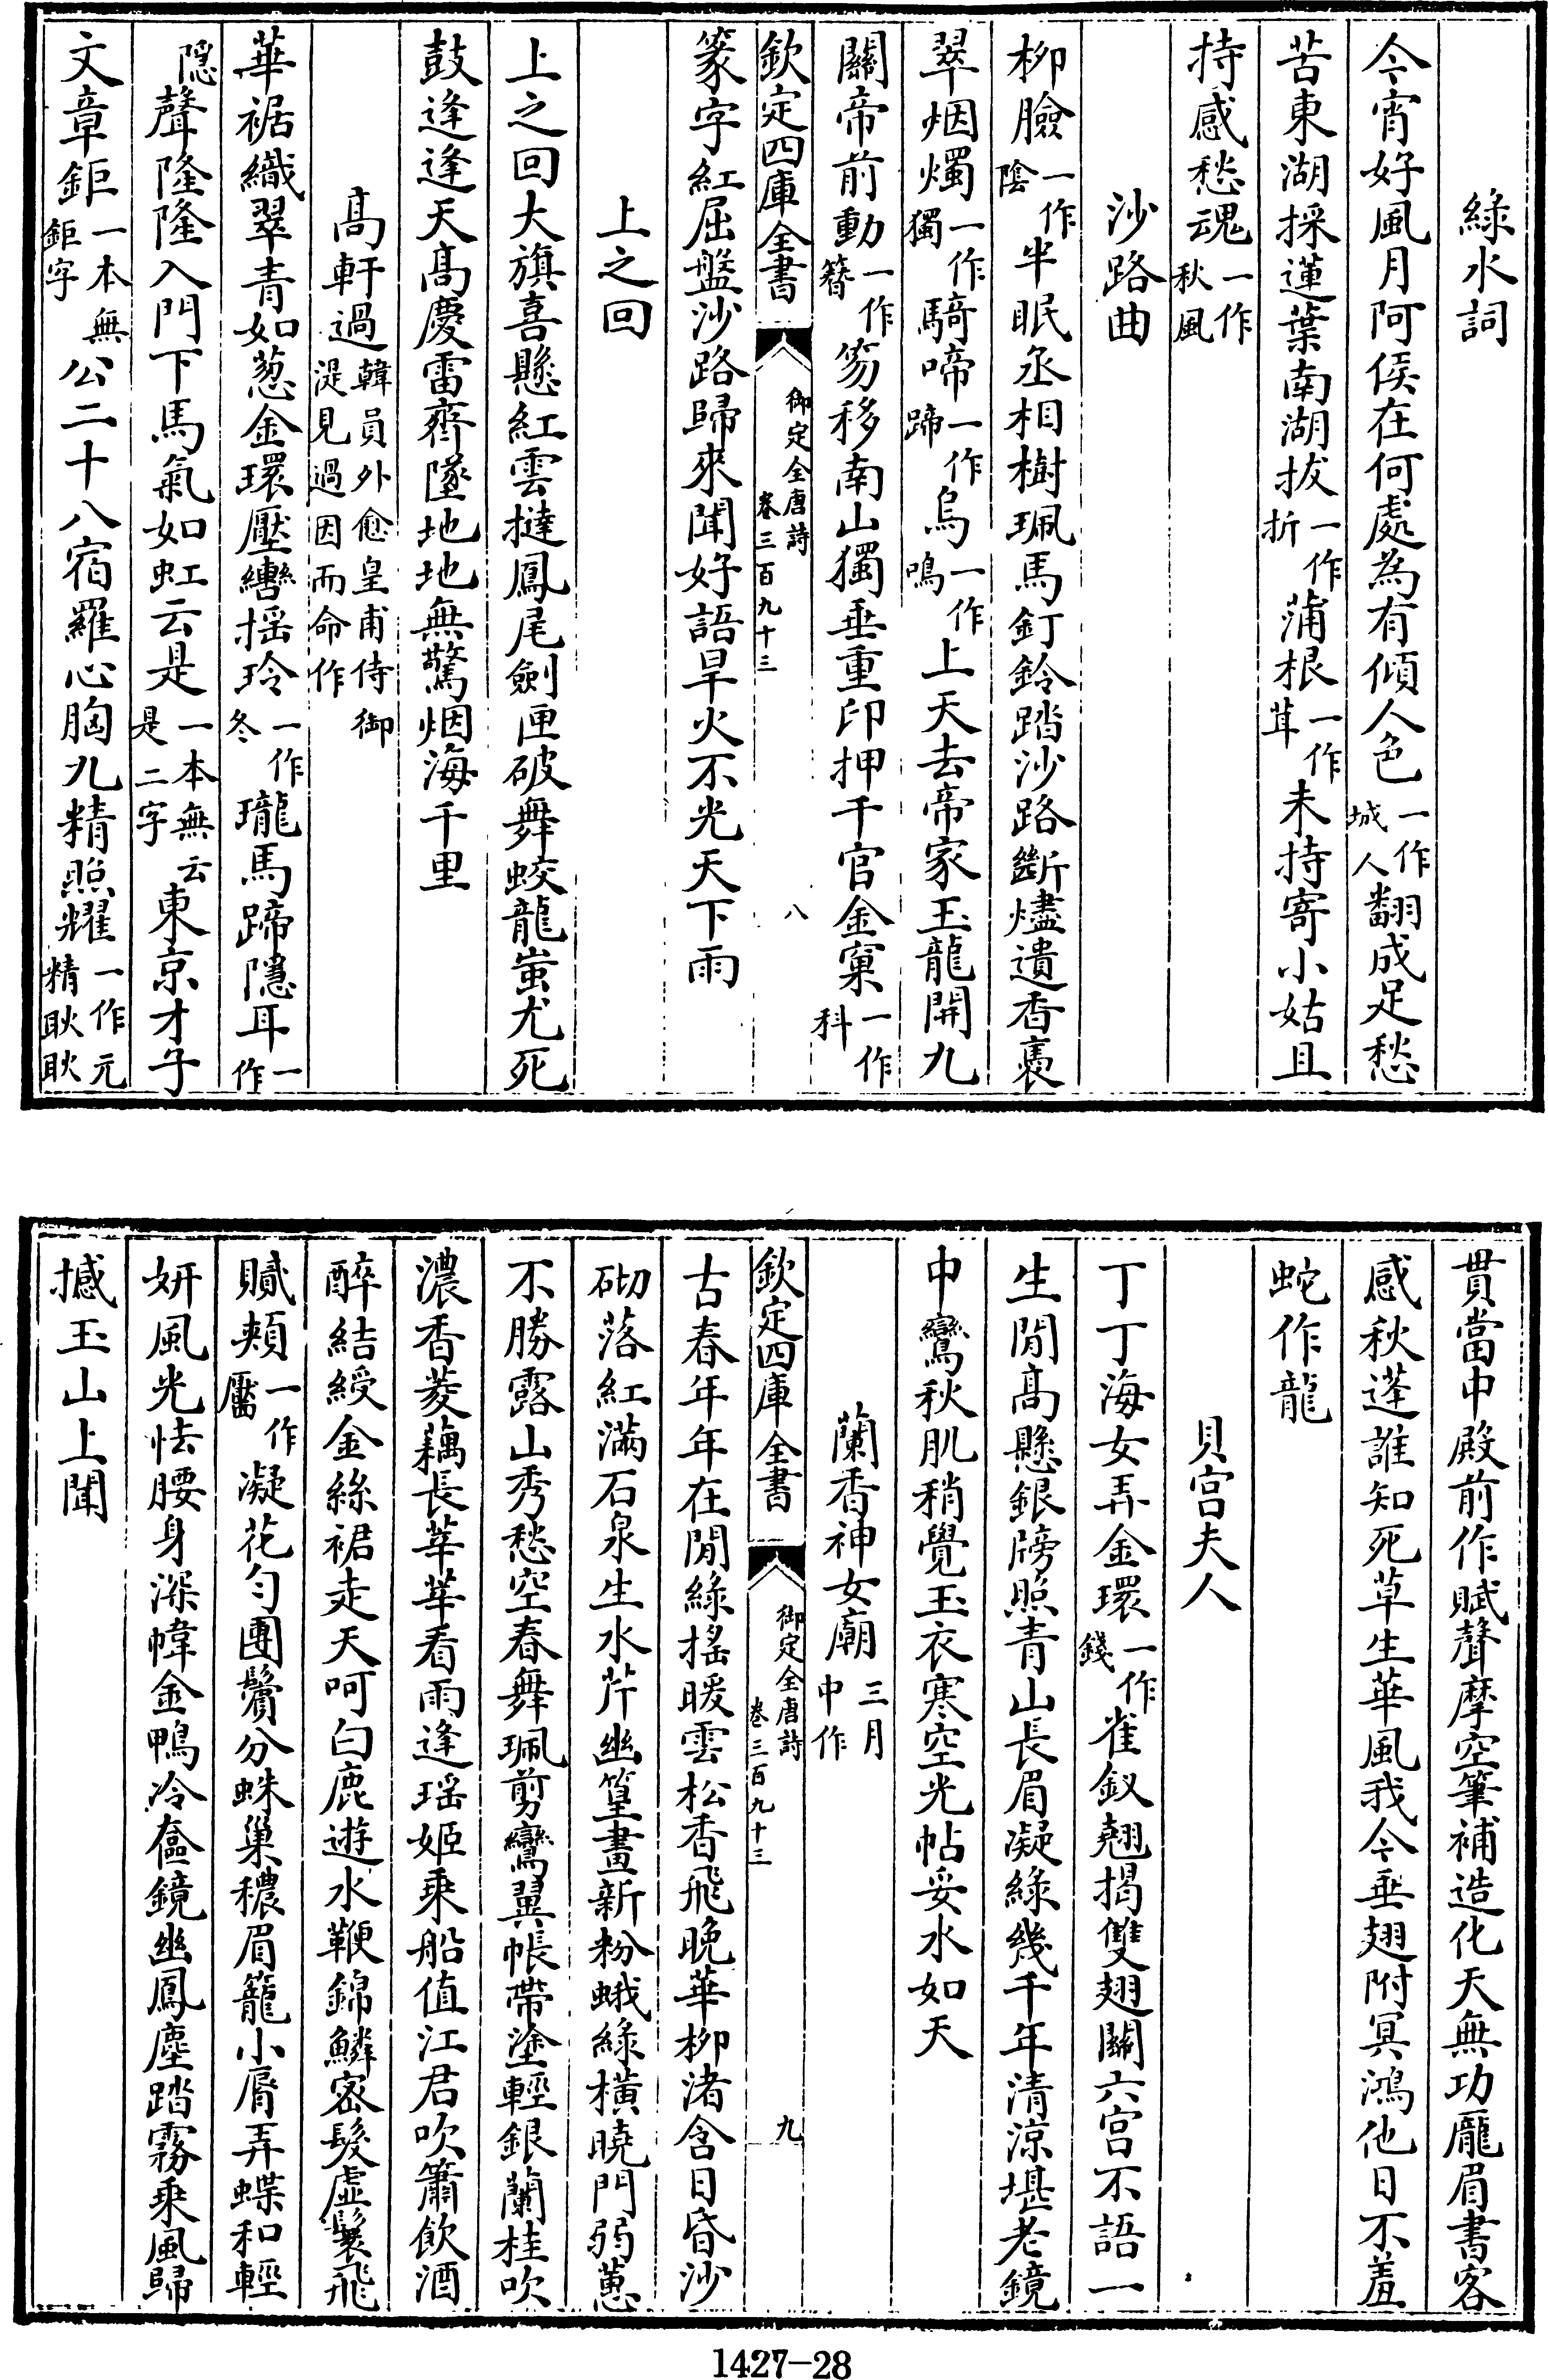 綠水詞
今宵好風月阿侯在何處為有傾人色一作城人翻成足愁
苦東湖採蓮葉南湖拔一作折蒲根一作茸未持寄小姑且
持感愁魂一作秋風
沙路曲
柳臉一作陰半眠丞相樹珮馬釘鈴踏沙路斷燼遺香裊
翠烟燭一作獨騎啼一作蹄烏一作鳴上天去帝家玉龍開九
關帝前動一作簪笏移南山獨垂重印押千官金窠一作科
欽定四庫全書 御定全唐詩 卷三百九十三 八
篆字紅屈盤沙路歸來聞好語旱火不光天下雨
上之回
上之回大旗喜懸紅雲撻鳳尾劍匣破舞蛟龍蚩尤死
鼓逢逢天高慶雷齊墜地地無驚烟海千里
高軒過韓員外愈皇甫侍御湜見過因而命作
華裾織翠青如葱金環壓轡揺玲一作冬瓏馬蹄隱耳一作
隠聲隆隆入門下馬氣如虹云是一本無云是二字東京才子
文章鉅一本無鉅字公二十八宿羅心胸九精照耀一作元精耿耿
貫當中殿前作賦聲摩空筆補造化天無功龎眉書客
感秋蓬誰知死草生華風我今垂翅附冥鴻他日不羞
蛇作龍
貝宮夫人
丁丁海女弄金環一作錢雀釵翹揭雙翅關六宮不語一
生閒高懸銀牓照青山長眉凝綠幾千年清涼堪老鏡
中鸞秋肌稍覺玉衣寒空光帖妥水如天
蘭香神女廟三月中作
欽定四庫全書 御定全唐詩 卷三百九十三 九
古春年年在閒綠搖暖雲松香飛晚華柳渚含日昏沙
砌落紅滿石泉生水芹幽篁畫新粉蛾綠橫曉門弱蕙
不勝露山秀愁空春舞珮剪鸞翼帳帶塗輕銀蘭桂吹
濃香菱藕長莘莘看雨逢瑤姬乘船值江君吹簫飲酒
醉結綬金絲裙走天呵白鹿遊水鞭錦鱗密髮虛鬟飛
膩頰一作靨凝花勻團鬢分蛛巢穠眉籠小脣弄蝶和輕
妍風光怯腰身深幃金鴨冷奩鏡幽鳳塵踏霧乘風歸
撼玉山上聞
1427-28